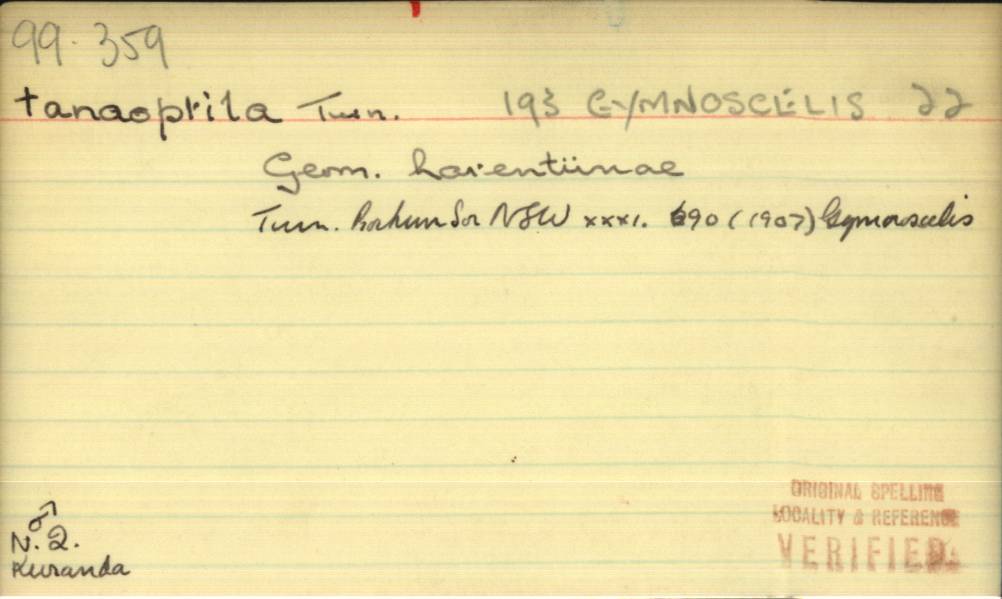 99. 359
tanaoptila Turn. 193 GYMNOSCELIS 22
Geom. larentiinae
Turn. Soc NSW xxxi. 690 (1907) Gymnoscelis
♂
N.Q.
Kuranda
ORIGINAL SPELLING
LOCALITY & REFERENCE
VERIFIED